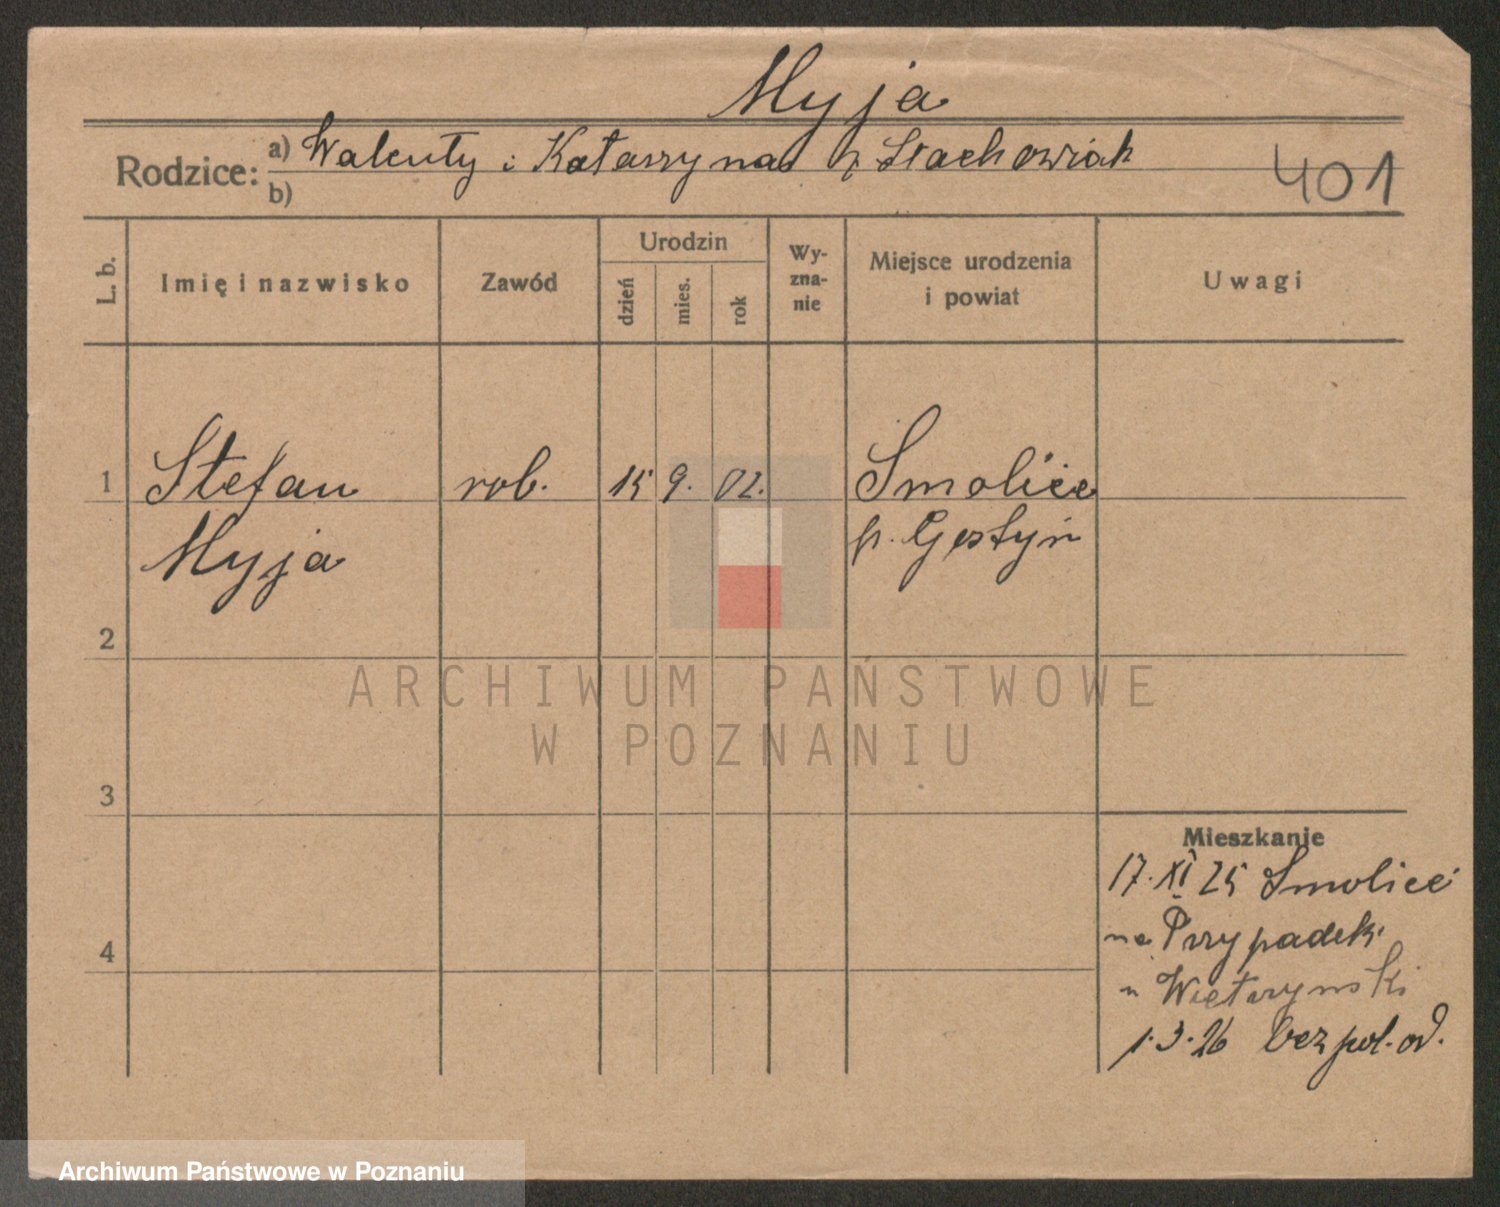 Myja
Rodzice: a) Walenty i Katarzyna z Stachowiak
b)
401
L. b. Imię i nazwisko Zawód Urodzin dzień mies. rok Wy-zna-nie Miejsce urodzenia i powiat Uwagi
1 Stefan rob. 15 9. 02. Smolice
Myja p. Gostyń
2
3
4
Mieszkanie
17. XI 25 Smolice
na Przypadek
u
1.3.26 bez pol. od.
ARCHIWUM PAŃSTWOWE
W POZNANIU
Archiwum Państwowe w Poznaniu